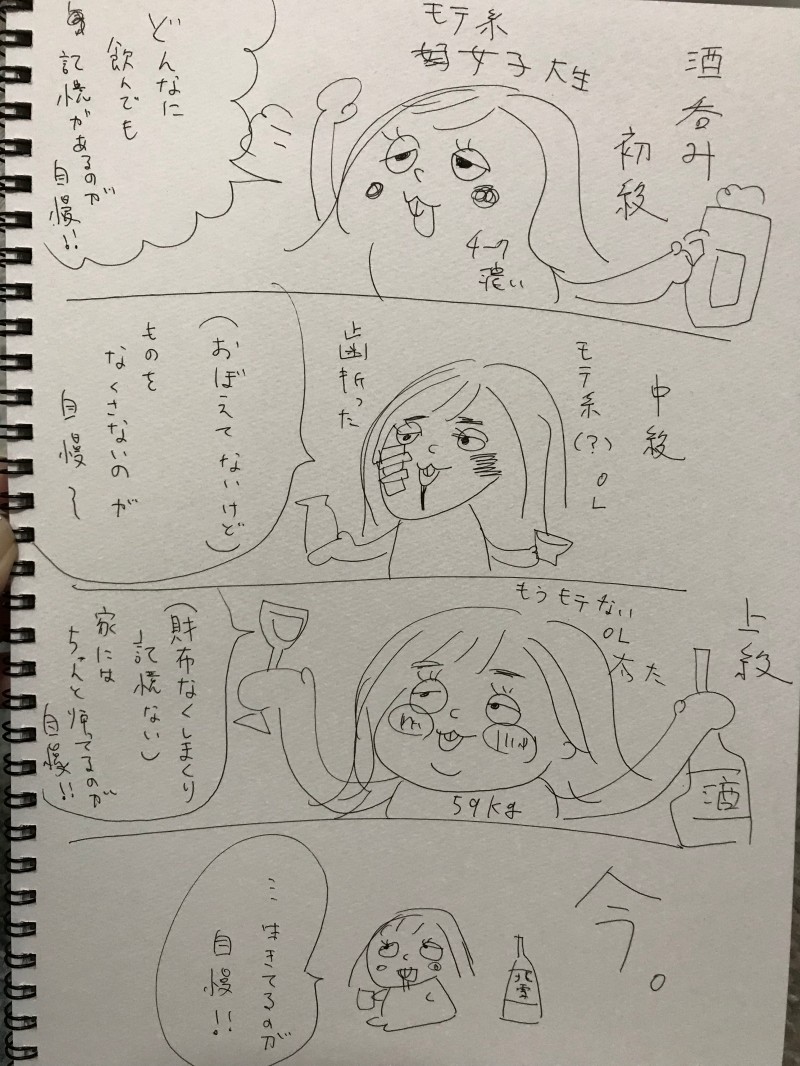 酒呑み
初級
モテ系
女子大生
チーク
濃い
どんなに
飲んでも
記憶があるのが
自慢!!
中級
モテ系(?)OL
歯折った
(おぼえてないけど)
ものを
なくさないのが
自慢〜
上級
もうモテない
OL
太った
59kg
酒
(財布なくしまくり
記憶ない)
家には
ちゃんと帰ってるのが
自慢!!
今。
北雪
…生きてるのが
自慢!!